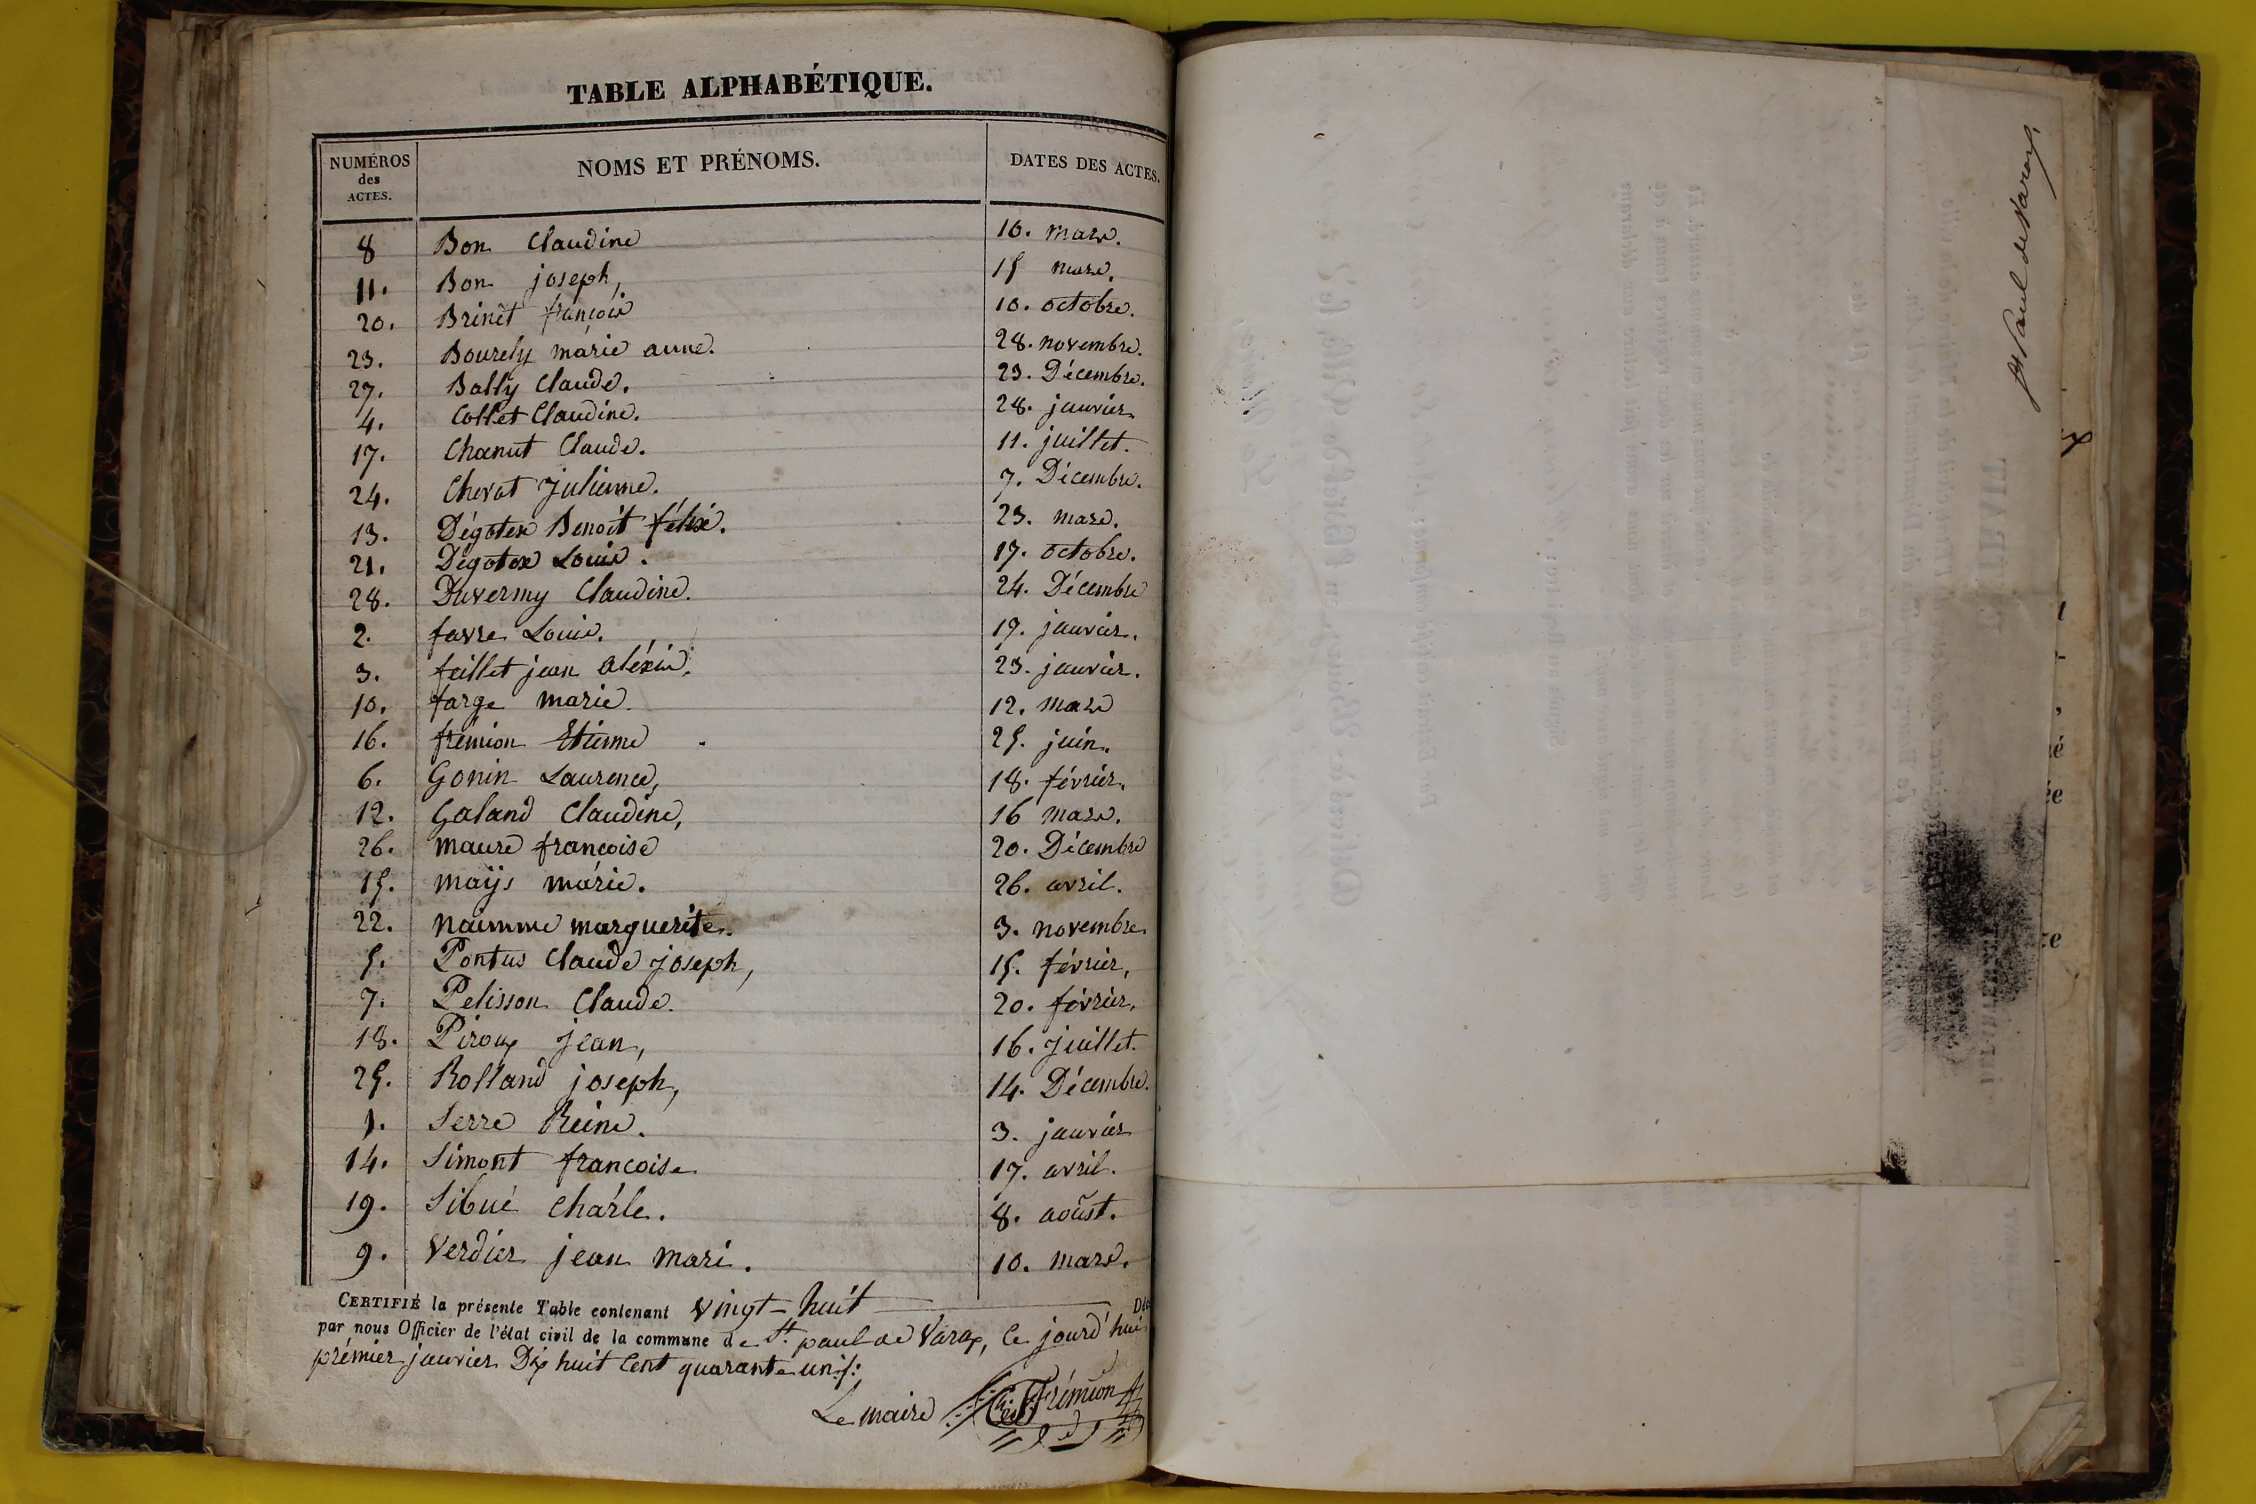 TABLE ALPHABÉTIQUE.
NUMÉROS des ACTES. NOMS ET PRÉNOMS. DATES DES ACTES.
8 Bon Claudine 10. mars.
11. Bon joseph, 15 mars.
20. Brinèt françois 10. octobre.
23. Bourely marie anne. 28. novembre.
27. Bally Claude. 23. Décembre.
4. Collet Claudine. 28. janvier
17. Chanut Claude. 11. juillet.
24. Chevat Julienne. 7. Décembre.
13. Dégotex Benoit félix. 23. mars.
21. Dégotex Louis. 17. octobre.
28. Duvermy Claudine. 24. Décembre
2. favre Louis. 19. janvier.
3. feillet jean aléxis. 23. janvier.
10. farge marie. 12. mars
16. frémion Etienne 25. juin.
6. Gonin Laurence, 18. février.
12. Galand Claudine, 16 mars.
26. maure francoise 20. Décembre
15. maÿs marie. 26. avril.
22. marguerite. 3. novembre.
5. Pontus Claude joseph, 15. février,
7. Pelisson Claude. 20. février,
18. Piroux jean, 16. juillet.
25. Rolland joseph, 14. Décembre.
1. Serre Reine. 3. janvier
14. Simont francoise 17. avril.
19. Sibué charle. 8. aoûst.
9. Verdier jean mari. 10. mars.
CERTIFIÉ la présente Table contenant vingt-huit
par nous Officier de l'état civil de la commune de St. paul de Varax, ce jourd'hui
prémier janvier Dix huit cent quarante un.
Le maire Frémion
St Paul de Varax